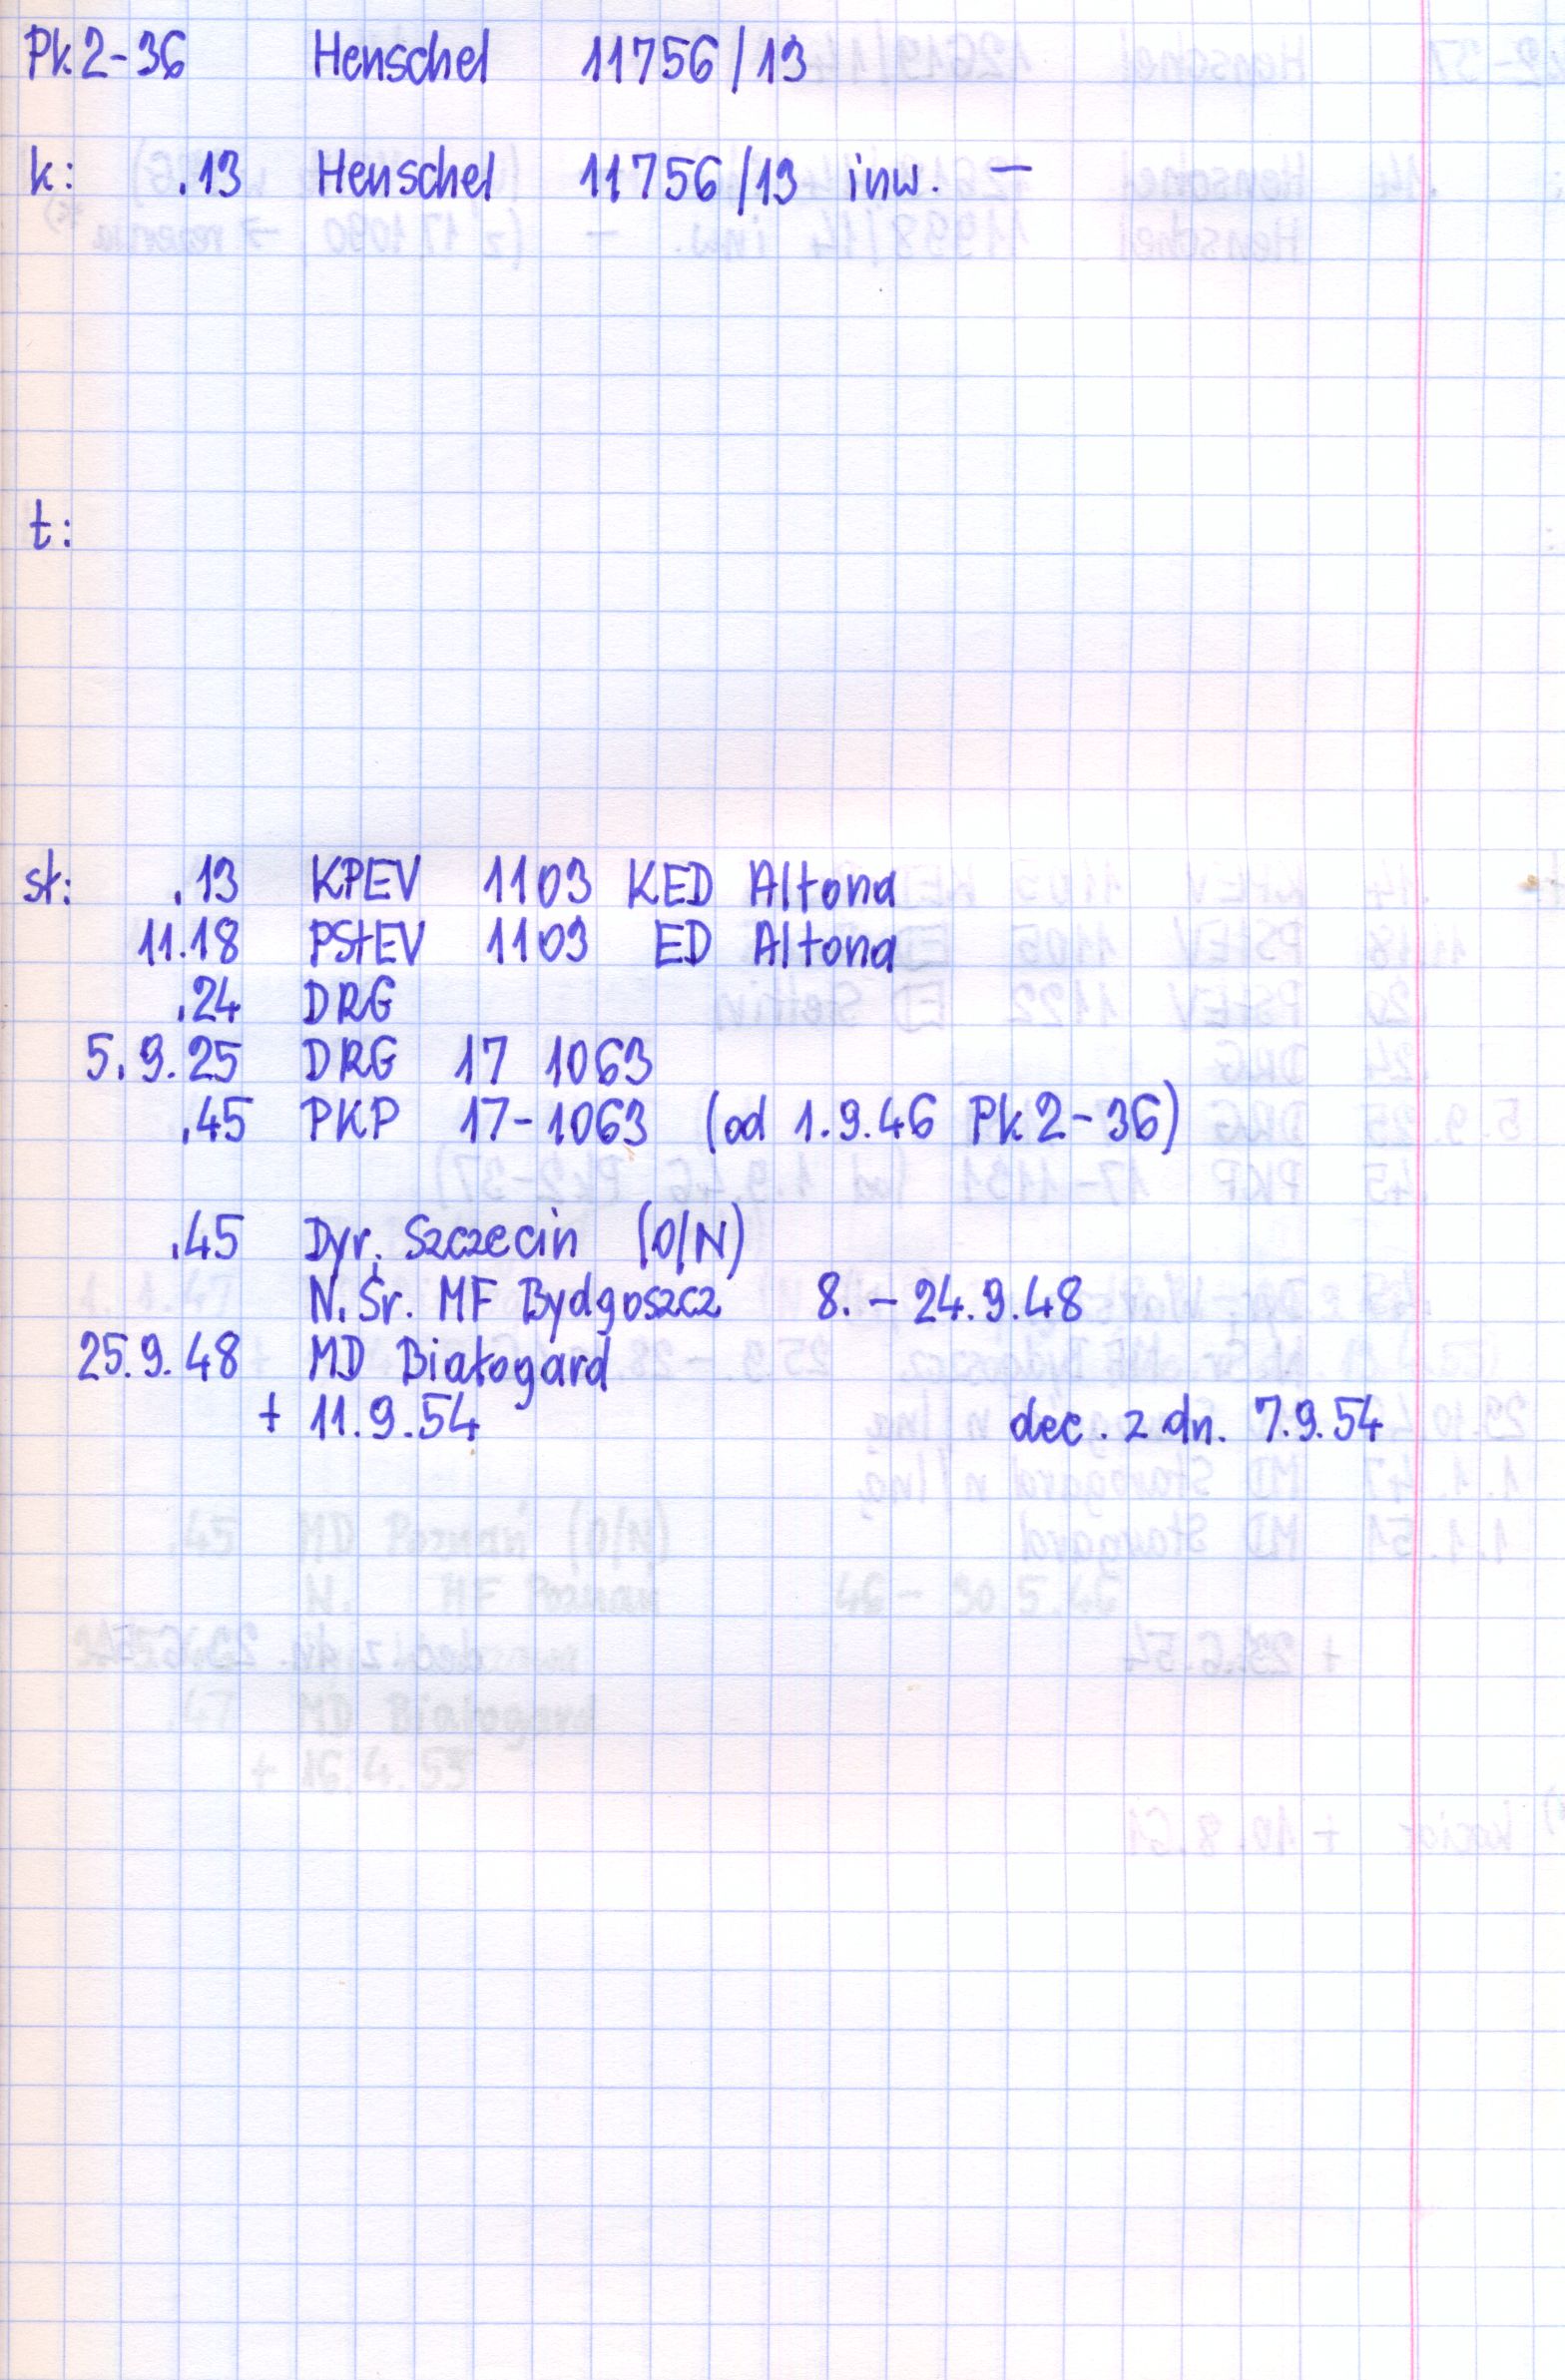 Pk2-36 Henschel 11756/13
k: .13 Henschel 11756/13 inw. –
t:
st: .13 KPEV 1103 KED Altona
11.18 PStEV 1103 ED Altona
.24 DRG
5.9.25 DRG 17 1063
.45 PKP 17-1063 (od 1.9.46 Pk2-36)
.45 Dyr. Szczecin (O/N)
N.Śr. MF Bydgoszcz 8. – 24.9.48
25.9.48 MD Białogard
+ 11.9.54 dec. z dn. 7.9.54
.45 MD Poznań (O/N)
N. MF Poznań 46 – 30.5.46
.47 MD Białogard
+ 16.4.55